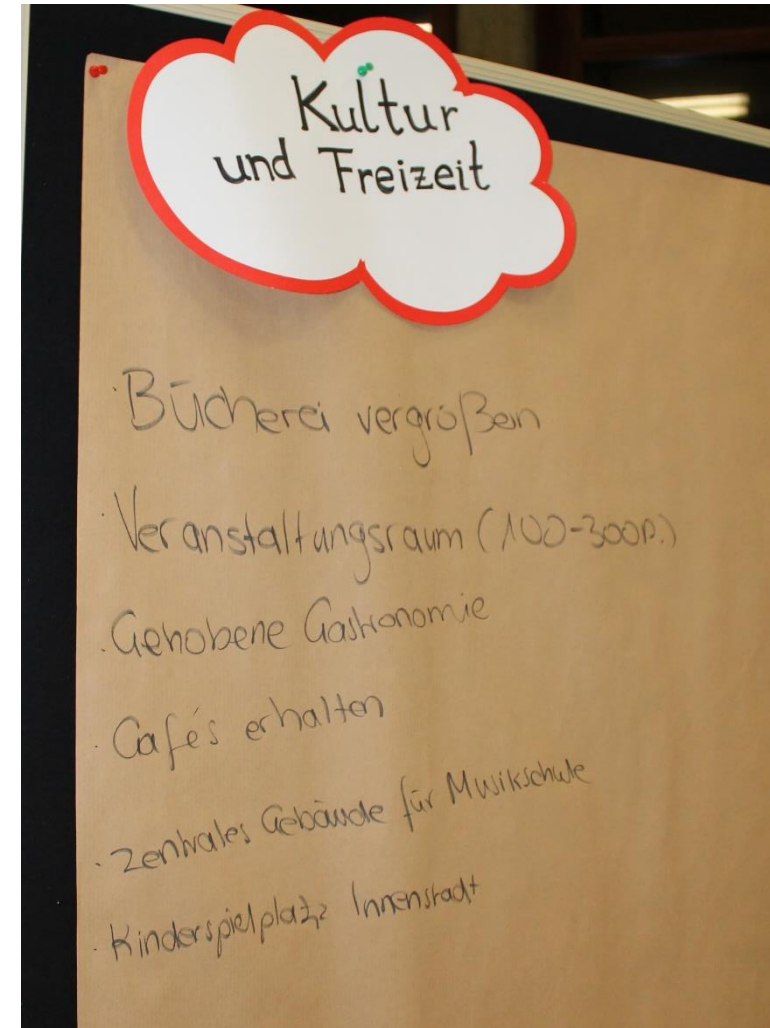 Kultur
und Freizeit
· Bücherei vergrößern
· Veranstaltungsraum (100-300P.)
· Gehobene Gastronomie
· Cafés erhalten
· Zentrales Gebäude für Musikschule
· Kinderspielplatz Innenstadt